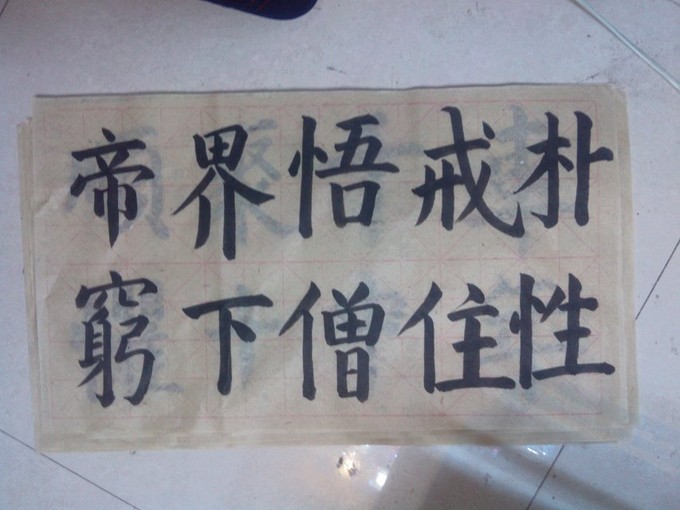 朴性
戒住
悟僧
界下
帝窮